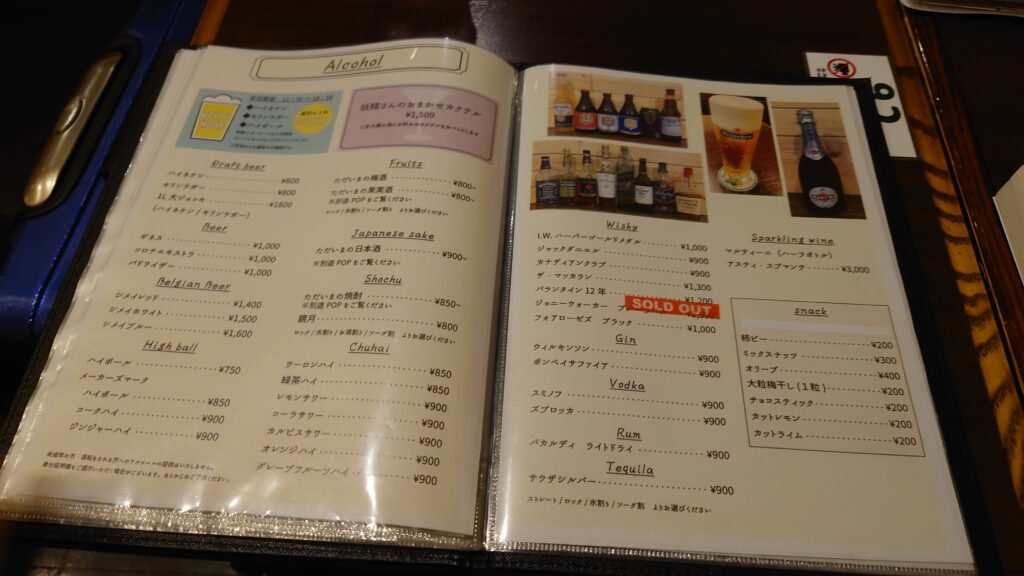 Alcohol
平日限定
HAPPY HOUR
◆ハイネケン
◆キリンラガー
◆ハイボール
妖精さんのおまかせカクテル
¥1,500
Draft beer
ハイネケン ¥800
キリンラガー ¥800
1L 大ジョッキ ¥1800
(ハイネケン / キリンラガー)
Beer
ギネス ¥1,000
コロナエキストラ ¥1,000
バドワイザー ¥1,000
Belgian Beer
シメイレッド ¥1,400
シメイホワイト ¥1,500
シメイブルー ¥1,600
High ball
ハイボール ¥750
メーカーズマーク
ハイボール ¥850
コークハイ ¥900
ジンジャーハイ ¥900
未成年の方 運転をされる方へのアルコールの提供はいたしません。
身分証明書をご提示いただく場合がございます。あらかじめご了承ください。
Fruits
ただいまの梅酒 ¥800~
ただいまの果実酒 ¥800~
※別途 POP をご覧ください
ロック / 水割り / ソーダ割 よりお選びください
Japanese sake
ただいまの日本酒 ¥900~
※別途 POP をご覧ください
Shochu
ただいまの焼酎 ¥850~
※別途 POP をご覧ください
鏡月 ¥800
ロック / 水割り / お湯割り / ソーダ割 よりお選びください
Chuhai
ウーロンハイ ¥850
緑茶ハイ ¥850
レモンサワー ¥900
コーラサワー ¥900
カルピスサワー ¥900
オレンジハイ ¥900
グレープフルーツハイ ¥900
Wisky
I.W. ハーパーゴールドメダル ¥1,000
ジャックダニエル ¥900
カナディアンクラブ ¥900
ザ・マッカラン ¥1,300
バランタイン 12 年 ¥1,200
ジョニーウォーカー
SOLD OUT
フォアローゼズ ブラック ¥1,000
Gin
ウィルキンソン ¥900
ボンベイサファイア ¥900
Vodka
スミノフ ¥900
ズブロッカ ¥900
Rum
バカルディ ライトドライ ¥900
Tequila
サウザシルバー ¥900
ストレート / ロック / 水割り / ソーダ割 よりお選びください
Sparkling wine
マルティーニ (ハーフボトル)
アスティ・スプマンテ ¥3,000
snack
柿ピー ¥200
ミックスナッツ ¥300
オリーブ ¥400
大粒梅干し (1粒) ¥200
チョコスティック ¥200
カットレモン ¥200
カットライム ¥200